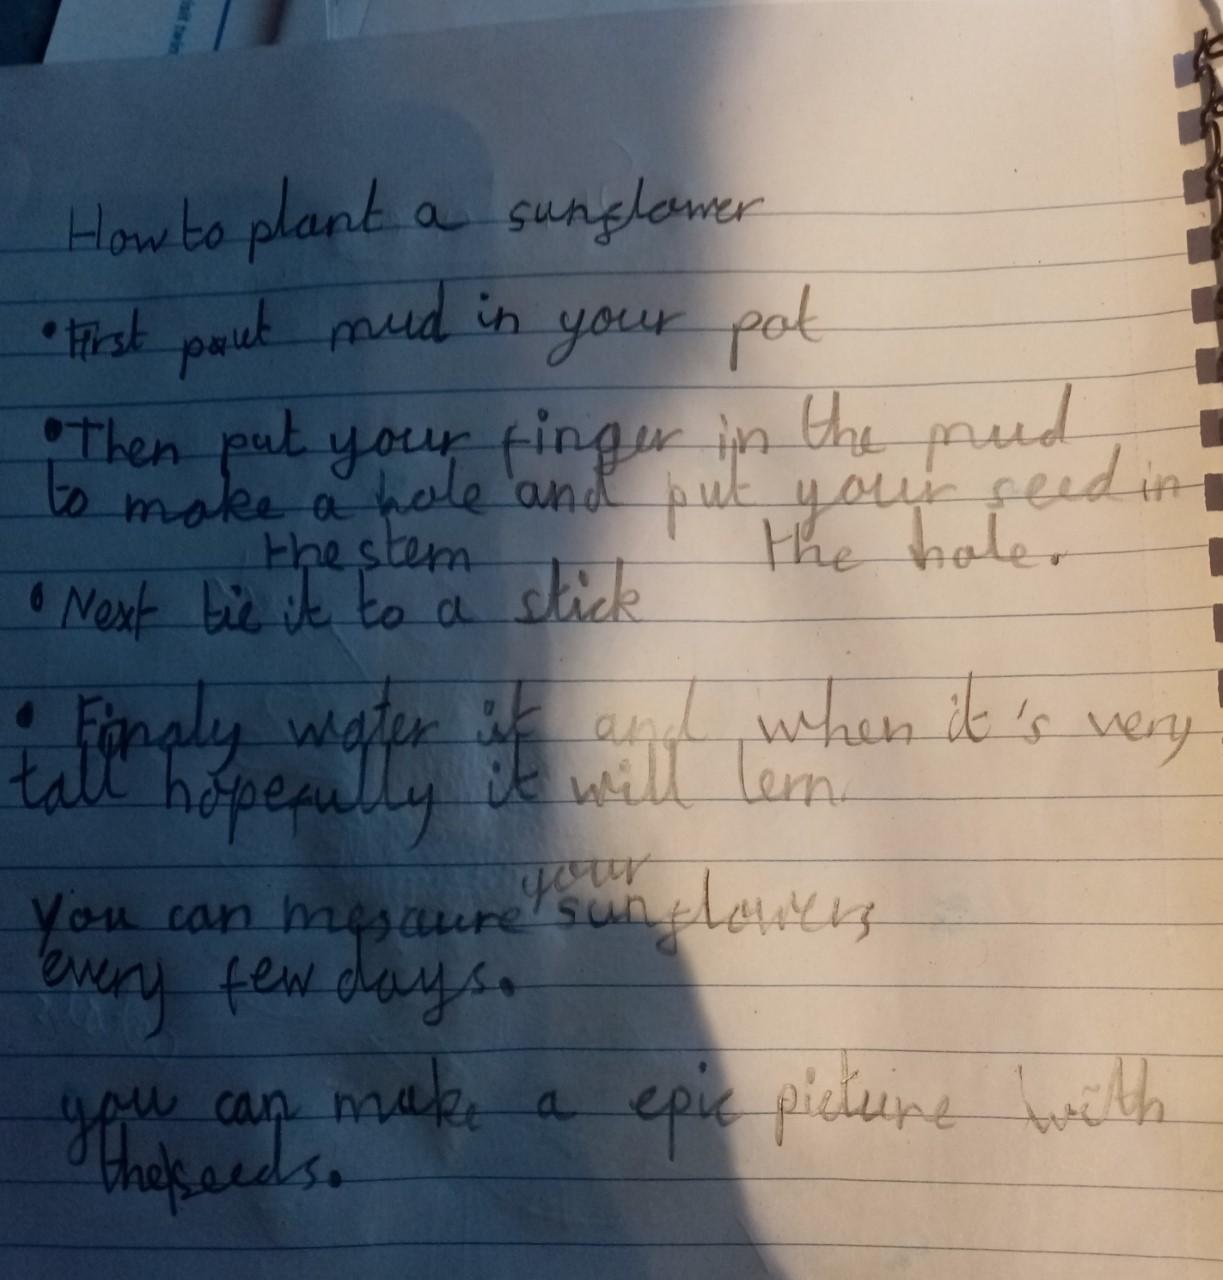 How to plant a sunflower
• First put mud in your pot
• Then put your finger in the mud
to make a hole and put your seed in
the hole.
the stem
• Next tie it to a stick
• Finaly water it and when it's very
tall hopefully it will
your
You can mesaure sunflowers
every few days.
you can make a epic picture with
the seeds.